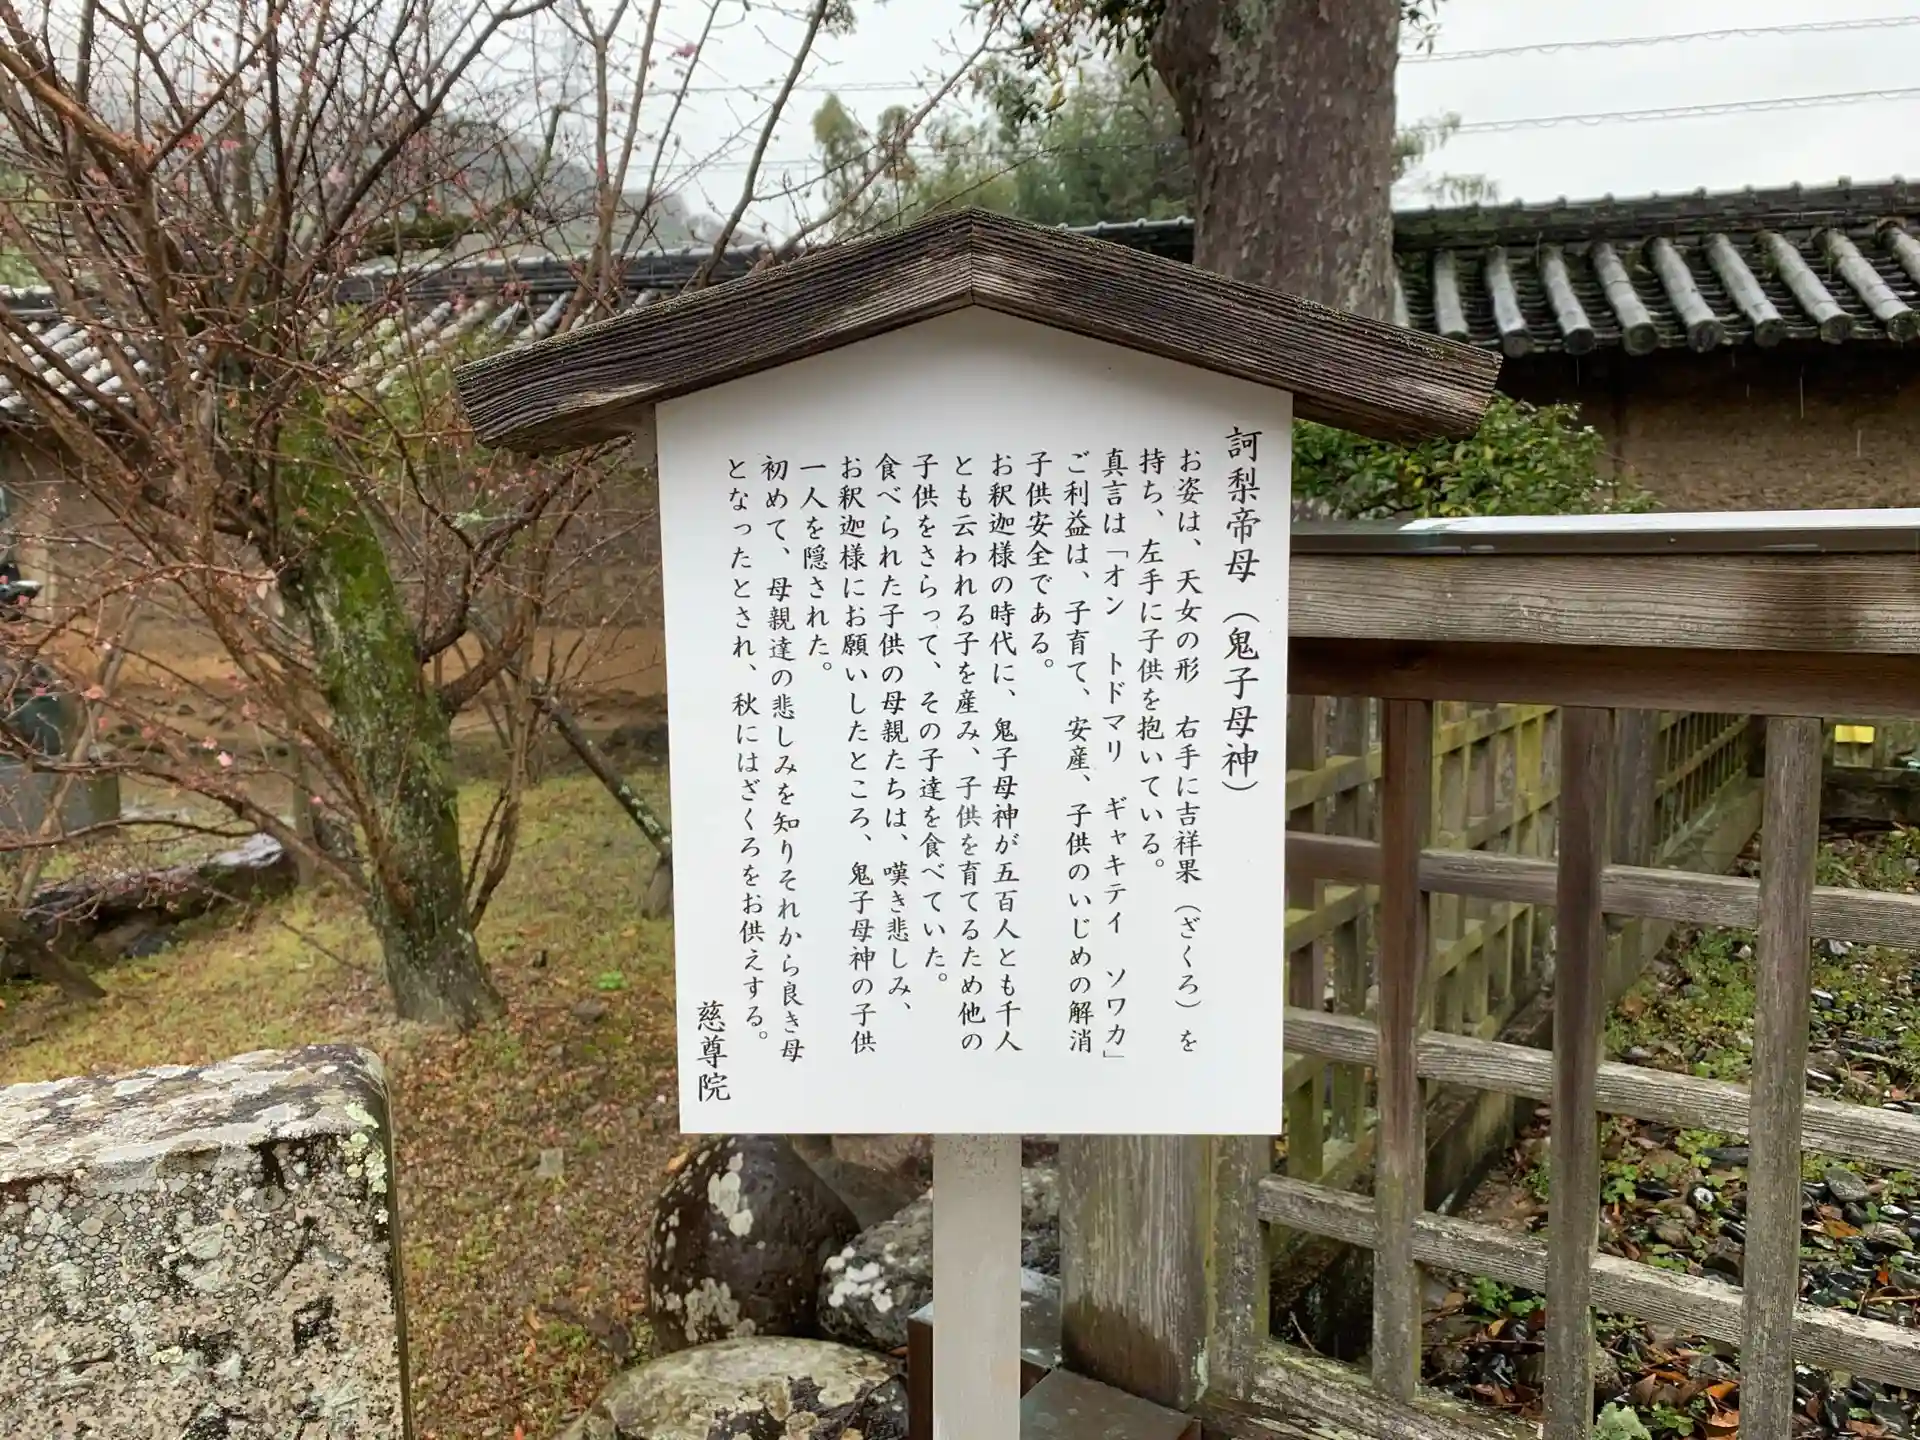 訶梨帝母（鬼子母神）
お姿は、天女の形　右手に吉祥果（ざくろ）を
持ち、左手に子供を抱いている。
真言は「オン　トドマリ　ギャキテイ　ソワカ」
ご利益は、子育て、安産、子供のいじめの解消
子供安全である。
お釈迦様の時代に、鬼子母神が五百人とも千人
とも云われる子を産み、子供を育てるため他の
子供をさらって、その子達を食べていた。
食べられた子供の母親たちは、嘆き悲しみ、
お釈迦様にお願いしたところ、鬼子母神の子供
一人を隠された。
初めて、母親達の悲しみを知りそれから良き母
となったとされ、秋にはざくろをお供えする。
慈尊院